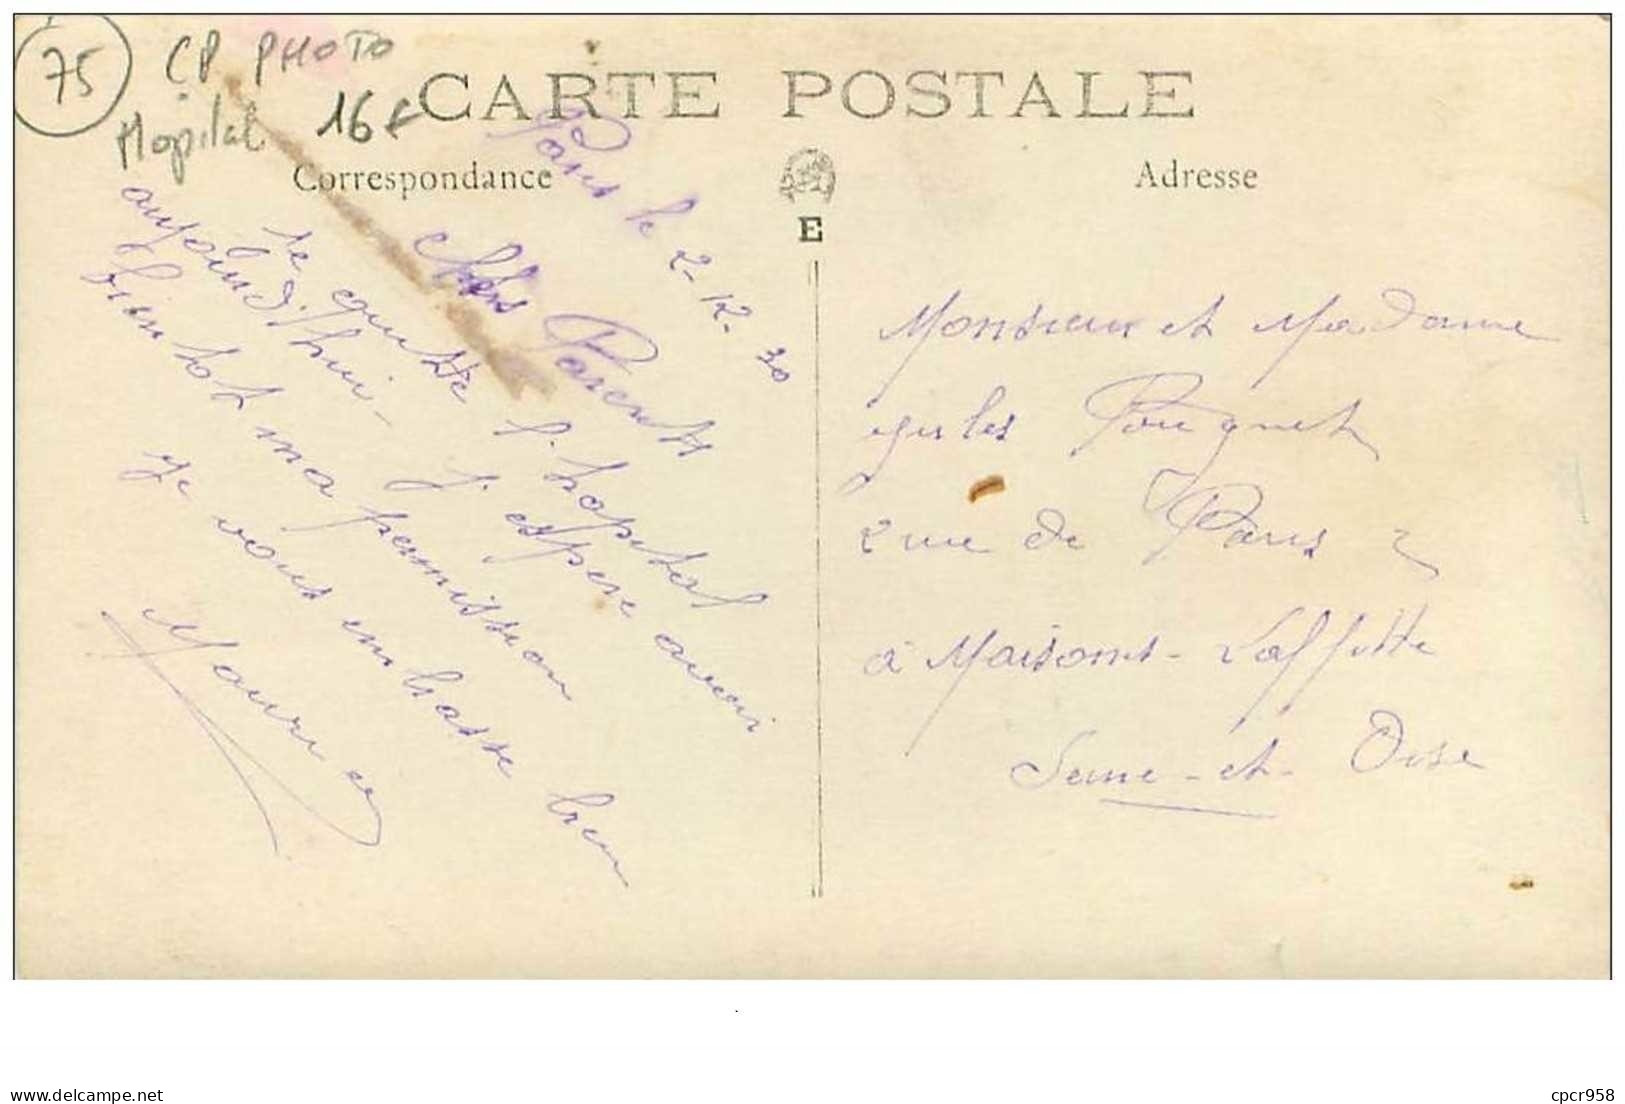 75
CP PHOTO
Hopital
16€
CARTE POSTALE
Correspondance
Adresse
E
Paris le 2-12-30
Chers Parents
Je quitte l'hopital
aujoud'hui - J'espere avoir
bientot ma permission
Je vous embrasse bien
Maurice
Monsieur et Madame
Jules Pouquet
2 rue de Paris 2
à Maisons-Laffitte
Seine-et-Oise
www.delcampe.net
cpcr958